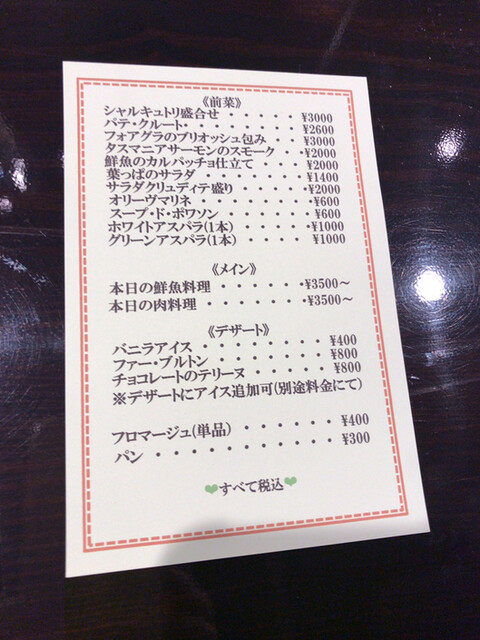 《前菜》
シャルキュトリ盛合せ ・・・・・ ¥3000
パテ・クルート・・・・・・・・ ¥2600
フォアグラのブリオッシュ包み ・・ ¥3000
タスマニアサーモンのスモーク ・・¥2000
鮮魚のカルパッチョ仕立て ・・・ ¥2000
葉っぱのサラダ ・・・・・・・ ¥1400
サラダクリュディテ盛り ・・・・・¥2000
オリーヴマリネ ・・・・・・・・¥600
スープ・ド・ポワソン ・・・・・ ¥600
ホワイトアスパラ(1本) ・・・・・¥1000
グリーンアスパラ(1本) ・・・・ ¥1000
《メイン》
本日の鮮魚料理 ・・・・・・・¥3500～
本日の肉料理 ・・・・・・・・¥3500～
《デザート》
バニラアイス ・・・・・・・・・ ¥400
ファー・ブルトン ・・・・・・・ ¥800
チョコレートのテリーヌ ・・・・・ ¥800
※デザートにアイス追加可(別途料金にて)
フロマージュ(単品) ・・・・・・ ¥400
パン ・・・・・・・・・・・ ¥300
💚すべて税込💚